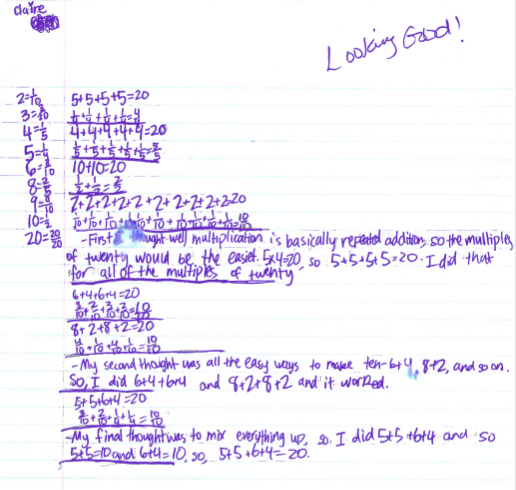 Claire
Looking Good!
2=1/10
3=3/10
4=1/5
5=1/4
6=3/10
8=2/5
9=/10
10=1/2
20=20/20
5+5+5+5=20
1/4+1/4+1/4+1/4=4/4
4+4+4+4+4=20
1/5+1/5+1/5+1/5+1/5=5/5
10+10=20
1/2+1/2=2/2
2+2+2+2+2+2+2+2+2+2=20
1/10+1/10+1/10+1/10+1/10+1/10+1/10+1/10+1/10+1/10=10/10
-First I thought well multiplication is basically repeated addition, so the multiples
of twenty would be the easiest. 5x4=20, so 5+5+5+5=20. I did that
for all of the multiples of twenty
6+4+6+4=20
3/10+2/10+3/10+2/10=10/10
8+2+8+2=20
4/10+1/10+4/10+1/10=10/10
-My second thought was all the easy ways to make ten-6+4, 8+2, and so on.
So, I did 6+4+6+4 and 8+2+8+2 and it worked.
5+5+6+4=20
3/10+2/10+1/4+1/4=10/10
-My final thought was to mix everything up, so I did 5+5+6+4 and so
5+5=10 and 6+4=10, so, 5+5+6+4=20.